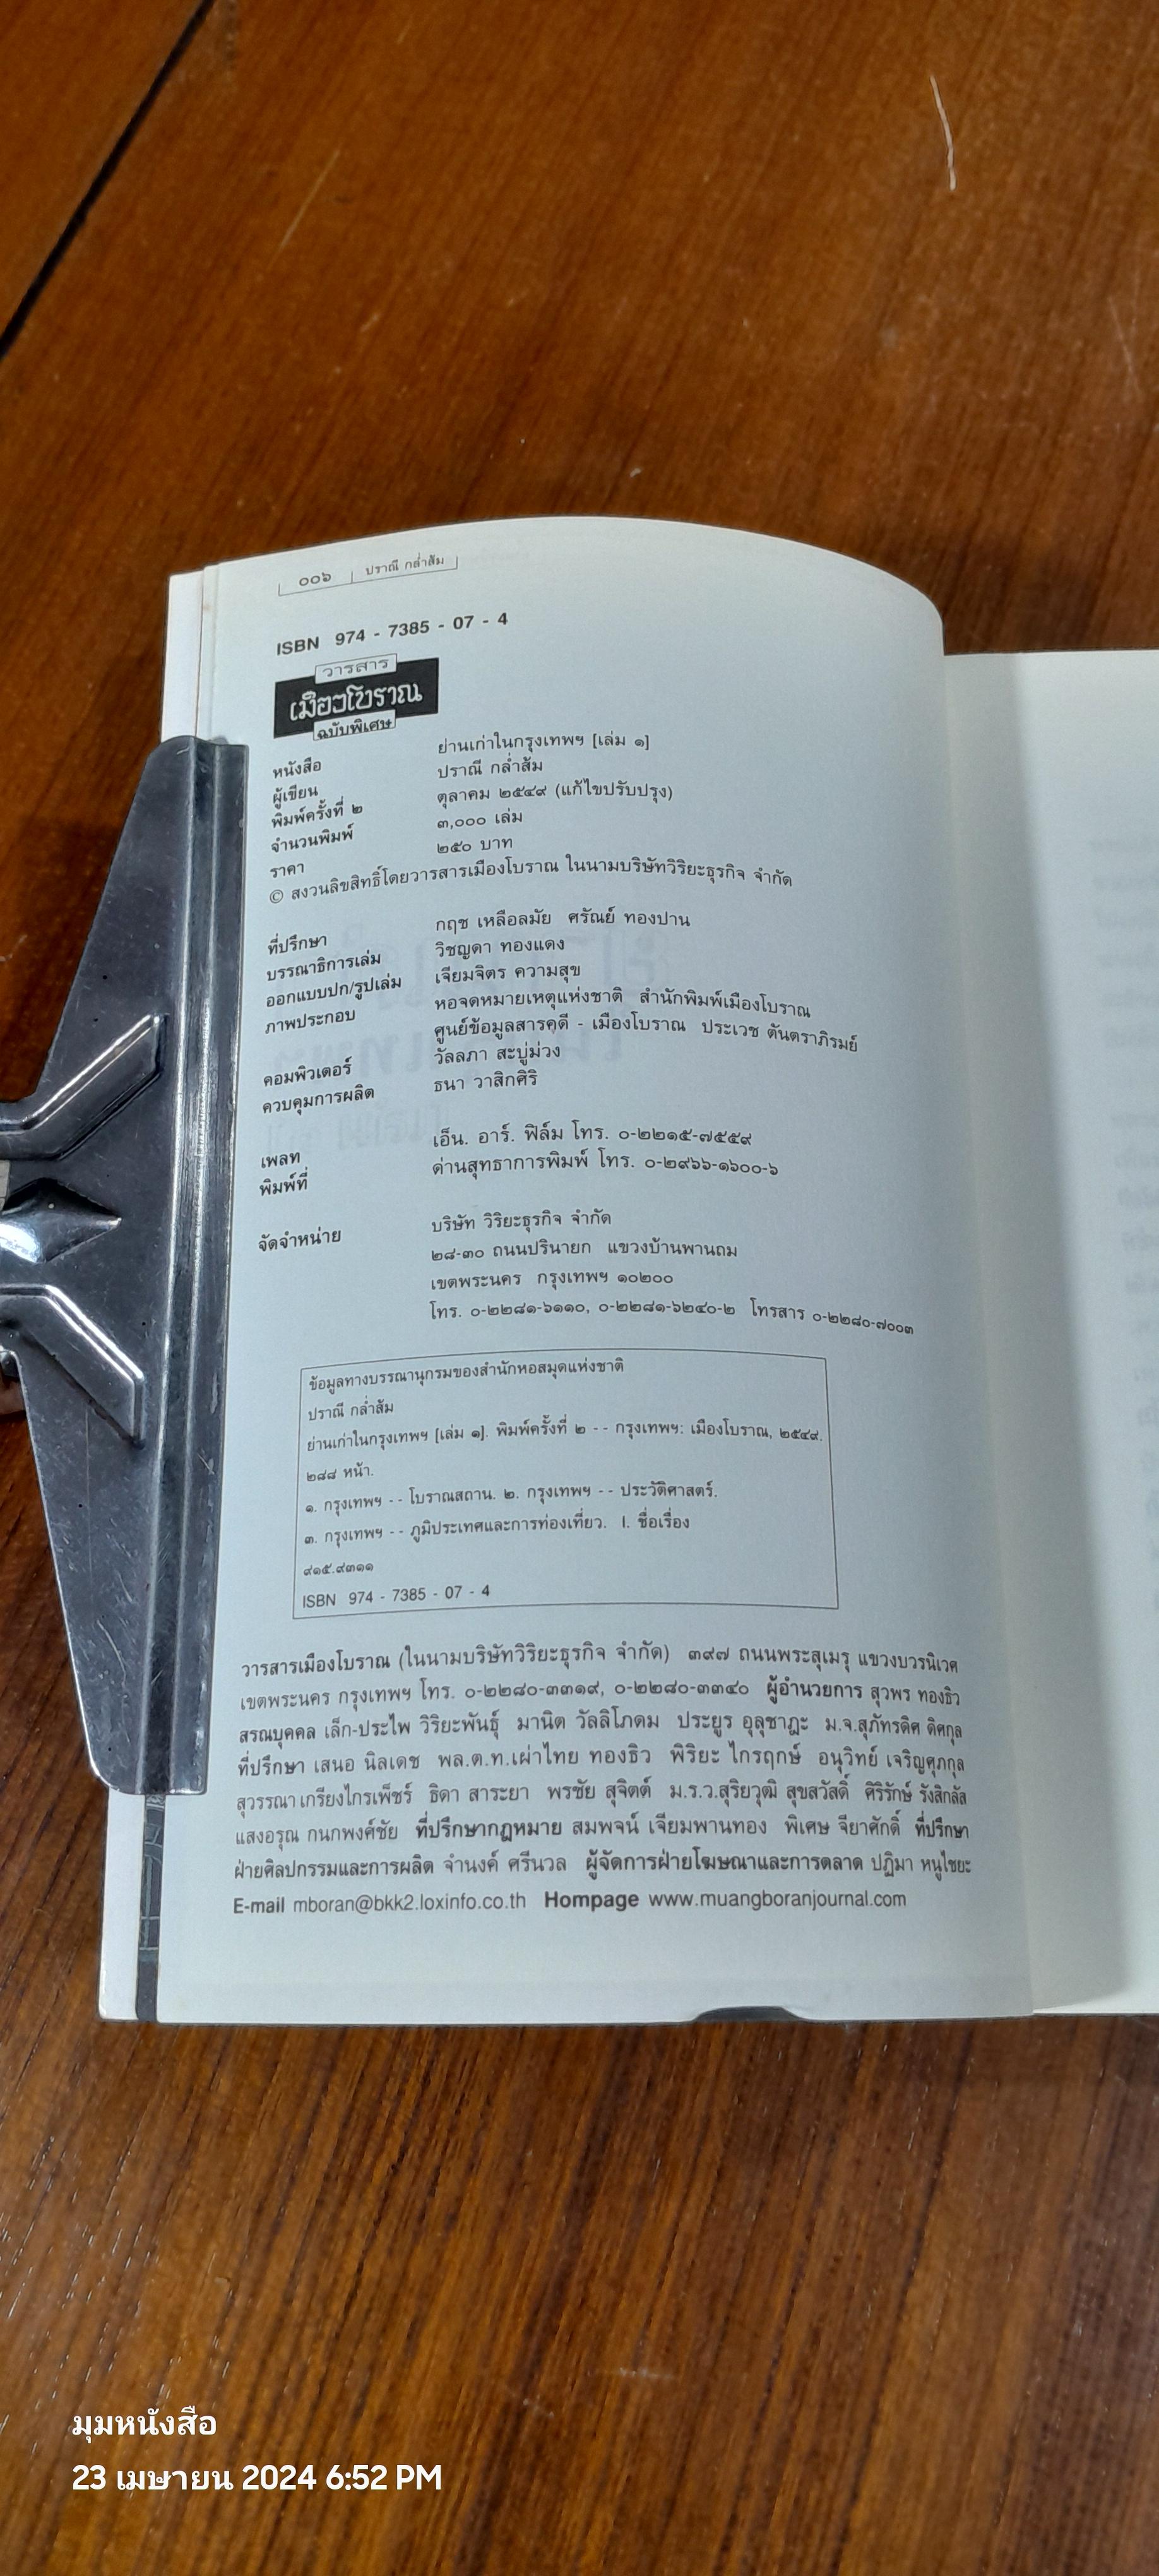 ๐๐๖ ปราณี กล่ำส้ม
ISBN 974 - 7385 - 07 - 4
วารสาร
เมืองโบราณ
ฉบับพิเศษ
หนังสือ ย่านเก่าในกรุงเทพฯ [เล่ม ๑]
ผู้เขียน ปราณี กล่ำส้ม
พิมพ์ครั้งที่ ๒ ตุลาคม ๒๕๔๙ (แก้ไขปรับปรุง)
จำนวนพิมพ์ ๓,๐๐๐ เล่ม
ราคา ๒๕๐ บาท
© สงวนลิขสิทธิ์โดยวารสารเมืองโบราณ ในนามบริษัทวิริยะธุรกิจ จำกัด
ที่ปรึกษา กฤช เหลือลมัย ศรัณย์ ทองปาน
บรรณาธิการเล่ม วิชญดา ทองแดง
ออกแบบปก/รูปเล่ม เจียมจิตร ความสุข
ภาพประกอบ หอจดหมายเหตุแห่งชาติ สำนักพิมพ์เมืองโบราณ
ศูนย์ข้อมูลสารคดี - เมืองโบราณ ประเวช ตันตราภิรมย์
คอมพิวเตอร์ วัลลภา สะบู่ม่วง
ควบคุมการผลิต ธนา วาสิกศิริ
เพลท เอ็น. อาร์. ฟิล์ม โทร. ๐-๒๒๑๕-๗๕๕๙
พิมพ์ที่ ด่านสุทธาการพิมพ์ โทร. ๐-๒๙๖๖-๑๖๐๐-๖
จัดจำหน่าย บริษัท วิริยะธุรกิจ จำกัด
๒๘-๓๐ ถนนปรินายก แขวงบ้านพานถม
เขตพระนคร กรุงเทพฯ ๑๐๒๐๐
โทร. ๐-๒๒๘๑-๖๑๑๐, ๐-๒๒๘๑-๖๒๔๐-๒ โทรสาร ๐-๒๒๘๐-๗๐๐๓
ข้อมูลทางบรรณานุกรมของสำนักหอสมุดแห่งชาติ
ปราณี กล่ำส้ม
ย่านเก่าในกรุงเทพฯ [เล่ม ๑]. พิมพ์ครั้งที่ ๒ - - กรุงเทพฯ: เมืองโบราณ, ๒๕๔๙.
๒๘๘ หน้า.
๑. กรุงเทพฯ - - โบราณสถาน. ๒. กรุงเทพฯ - - ประวัติศาสตร์.
๓. กรุงเทพฯ - - ภูมิประเทศและการท่องเที่ยว. I. ชื่อเรื่อง
๙๑๕.๙๓๑๑
ISBN 974 - 7385 - 07 - 4
วารสารเมืองโบราณ (ในนามบริษัทวิริยะธุรกิจ จำกัด) ๓๙๗ ถนนพระสุเมรุ แขวงบวรนิเวศ
เขตพระนคร กรุงเทพฯ โทร. ๐-๒๒๘๐-๓๓๑๙, ๐-๒๒๘๐-๓๓๔๐ ผู้อำนวยการ สุวพร ทองธิว
สรณบุคคล เล็ก-ประไพ วิริยะพันธุ์ มานิต วัลลิโภดม ประยูร อุลุชาฎะ ม.จ.สุภัทรดิศ ดิศกุล
ที่ปรึกษา เสนอ นิลเดช พล.ต.ท.เผ่าไทย ทองธิว พิริยะ ไกรฤกษ์ อนุวิทย์ เจริญศุภกุล
สุวรรณา เกรียงไกรเพ็ชร์ ธิดา สาระยา พรชัย สุจิตต์ ม.ร.ว.สุริยวุฒิ สุขสวัสดิ์ ศิริรักษ์ รังสิกลัส
แสงอรุณ กนกพงศ์ชัย ที่ปรึกษากฎหมาย สมพจน์ เจียมพานทอง พิเศษ จียาศักดิ์ ที่ปรึกษา
ฝ่ายศิลปกรรมและการผลิต จำนงค์ ศรีนวล ผู้จัดการฝ่ายโฆษณาและการตลาด ปฏิมา หนูไชยะ
E-mail mboran@bkk2.loxinfo.co.th Hompage www.muangboranjournal.com
มุมหนังสือ
23 เมษายน 2024 6:52 PM